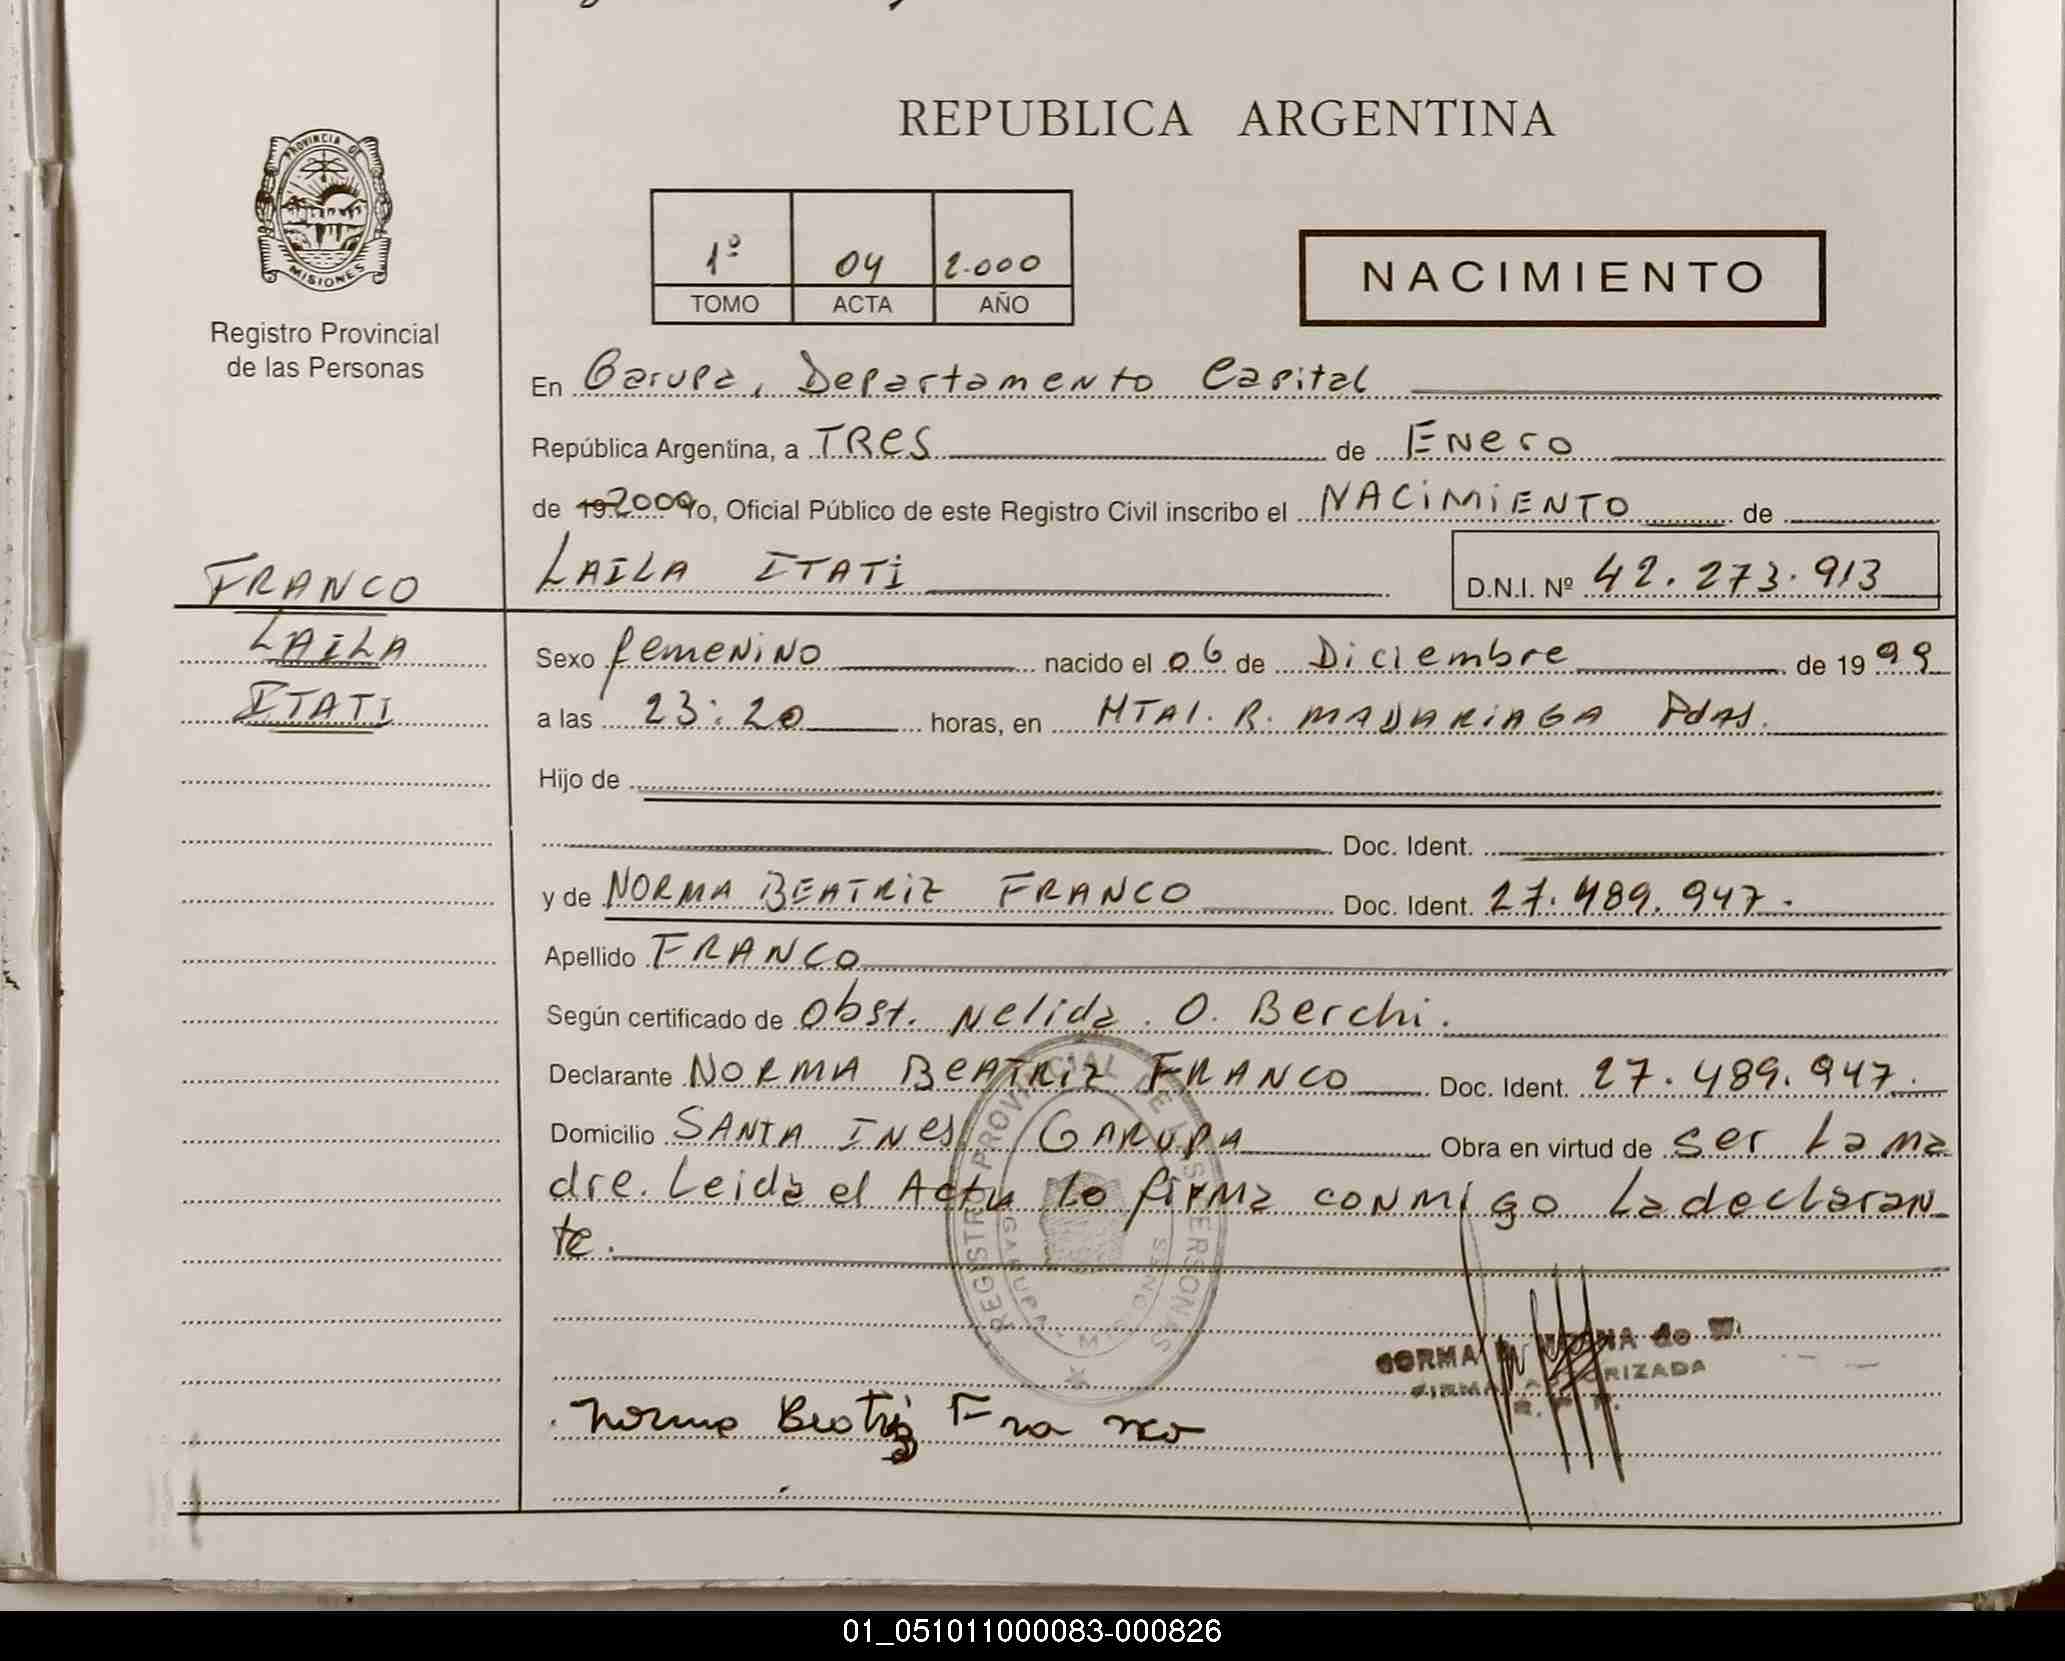 REPUBLICA ARGENTINA
PROVINCIA DE
MISIONES
Registro Provincial
de las Personas
1º 04 2.000
TOMO ACTA AÑO
NACIMIENTO
En Garupa, Departamento Capital
República Argentina, a TRES de ENERO
de 19 2000 Yo, Oficial Público de este Registro Civil inscribo el NACIMIENTO de
FRANCO
LAILA ITATI D.N.I. Nº 42.273.913
LAILA
ITATI
Sexo femenino nacido el 06 de Diciembre de 1999
a las 23:20 horas, en HTAl. R. MADARIAGA Pdas.
Hijo de
Doc. Ident.
y de NORMA BEATRIZ FRANCO Doc. Ident. 27.489.947.
Apellido FRANCO
Según certificado de Obst. Nelida. O. Berchi.
Declarante NORMA BEATRIZ FRANCO Doc. Ident. 27.489.947.
Domicilio SANTA INES GARUPA Obra en virtud de ser La ma
dre. Leida el Acta lo firma conmigo La declaran
te.
REGISTRO PROVINCIAL DE LAS PERSONAS
GARUPA - MISIONES
FIRMA AUTORIZADA
Norma Beatriz Franco
01_051011000083-000826